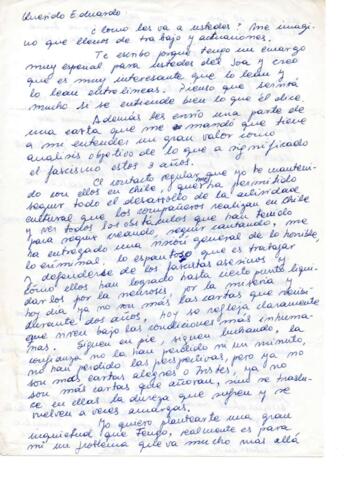 Querido Eduardo:
¿Cómo les va a ustedes? Me imagi-
no que llenos de trabajo y actuaciones.
Te escribo porque tengo un encargo
muy especial para ustedes del Joa y creo
que es muy interesante que lo lean y
lo lean entre líneas. Pienso que servirá
mucho si se entiende bien lo que él dice.
Además les envío una parte de
una carta que me mandó que tiene
a mi entender un gran valor como
análisis objetivo de lo que a significado
el fascismo estos 3 años.
El contacto regular que yo he manteni-
do con ellos en Chile, me ha permitido
seguir todo el desarrollo de la actividad
cultural que los compañeros realizan en Chile
y ver todos los obstáculos que han tenido
para seguir creando, seguir cantando, me
ha entregado una visión general de lo horrible,
lo criminal, lo espantoso que es trabajar
y defenderse de los fascistas asesinos y
cómo ellos han logrado hasta cierto punto liqui-
darlos por la neurosis, por la miseria y
hoy día ya no son más las cartas que recibí
durante dos años, hoy se refleja claramente
que viven bajo las condiciones más inhuma-
nas. Siguen en pie, siguen luchando, la
confianza no la han perdido ni un minuto,
no han perdido las perspectivas, pero ya no
son más cartas alegres o tristes, ya no
son más cartas que añoran, sino se traslu-
ce en ellas la dureza que sufren y se
vuelven a veces amargas.
Yo quiero plantearte una gran
inquietud que tengo, realmente es para
mí un problema que va mucho más allá